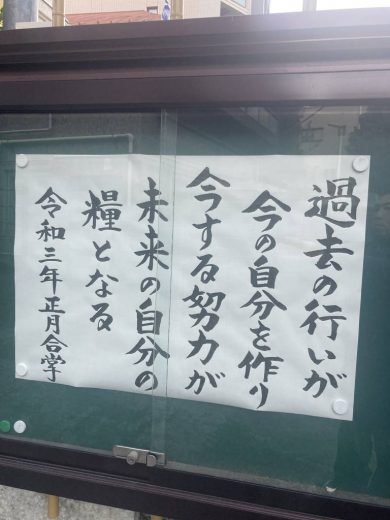 過去の行いが
今の自分を作り
今する努力が
未来の自分の
糧となる
令和三年正月合掌